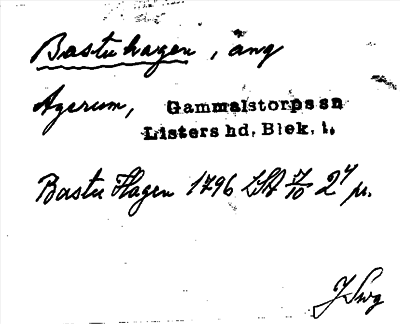 Bastuhagen, äng
Agerum, Gammalstorps sn
Listers hd, Blek. l.
Bastu Hagen 1796 LSA 7/10 2 μ.
J Swg